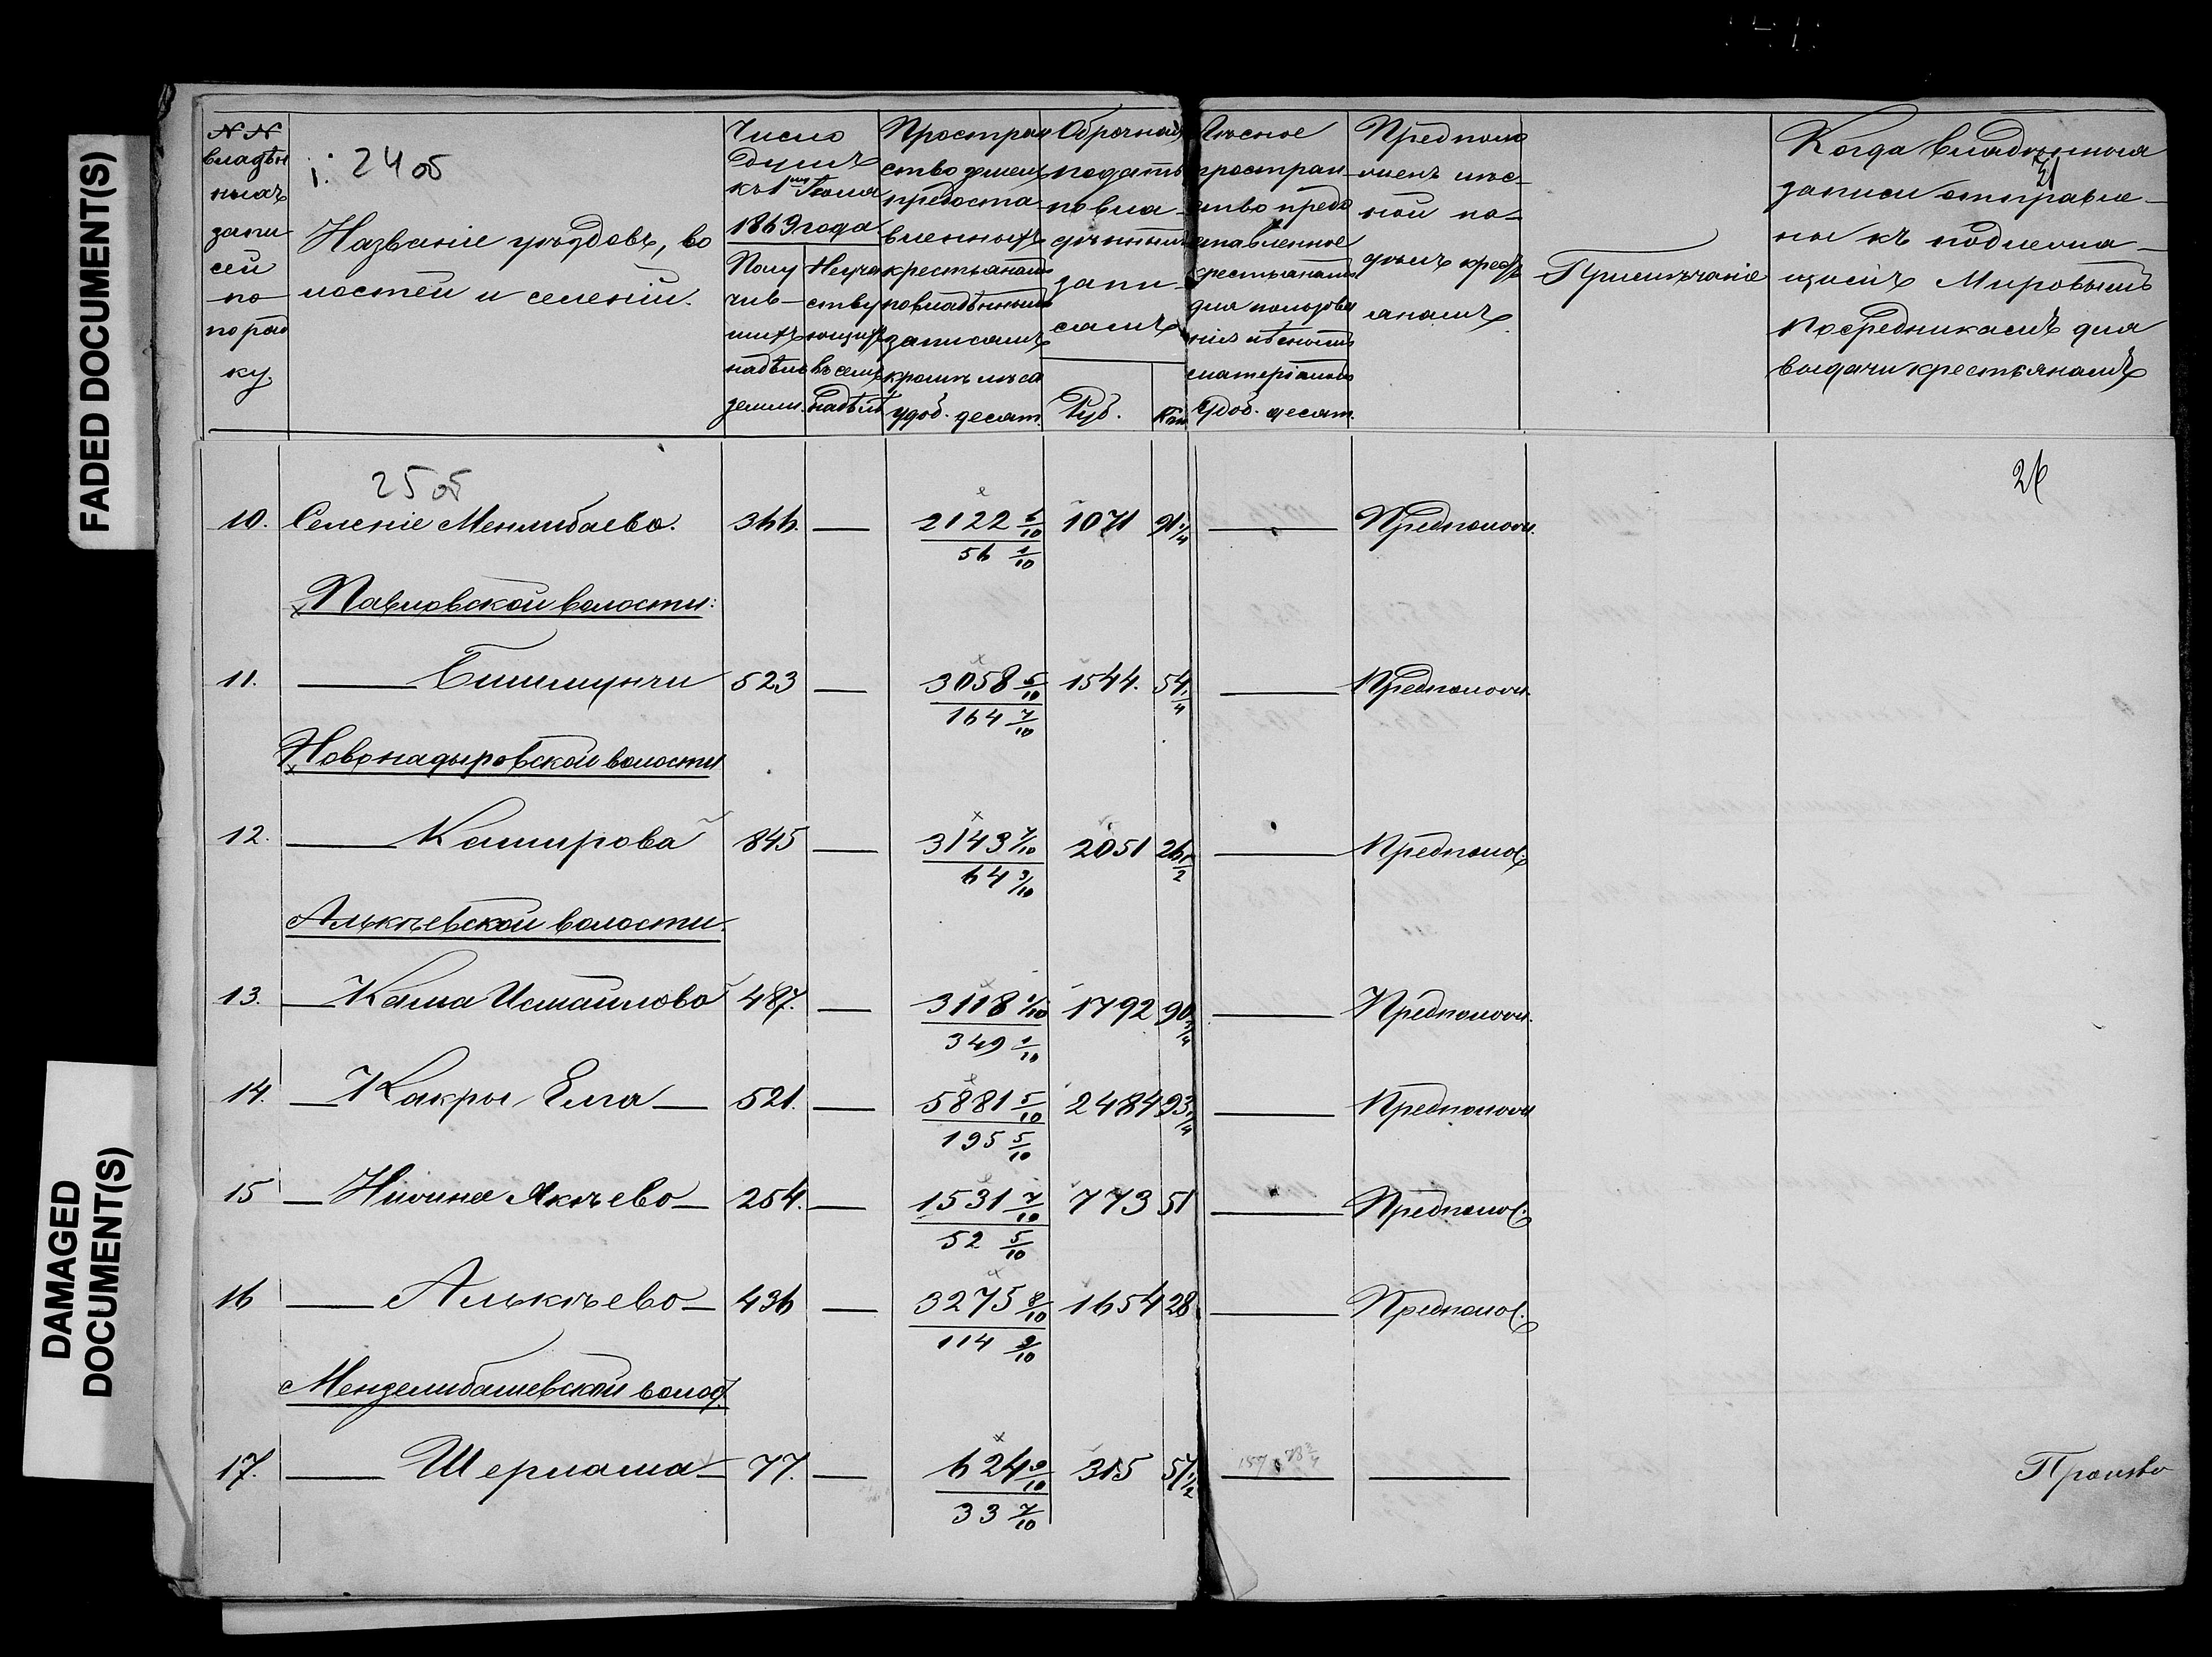 FADED DOCUMENT(S)
DAMAGED
DOCUMENT(S)
24 об
NN владѣнныхъ записей по порядку.
Названіе уѣздовъ, волостей и селеній.
Число душъ къ 1му Іюля 1869 года
Получившихъ надѣлъ земли.
Неучаствующихъ въ семъ надѣлѣ
Пространство земель предоставленныхъ крестьянамъ по владѣннымъ записямъ кромѣ лѣса удоб. десят.
Оброчная подать по владѣннымъ записямъ
Руб. Коп
Лѣсное пространство предоставленное крестьянамъ для пользованія лѣснымъ матеріаломъ Удоб. десят.
Предположенъ лѣсной надѣлъ крестьянамъ
Примѣчаніе
Когда владѣнныя записи отправлены къ подлежащимъ Мировымъ Посредникамъ для выдачи крестьянамъ
25 об
26
10. Селеніе Менлибаево. 366. — 2122 6/10 1071 91 1/4 — Предполож.
56 1/10
Павловской волости:
11. — Бишмунчи 523 — 3058 5/10 1544. 54 1/4 — Предполож.
164 7/10
Новонадыровской волости
12. — Кашшрова 845 — 3143 7/10 2051 26 1/2 — Предполож.
64 3/10
Алькѣевской волости.
13. — Кама Исмаилово 487. — 3118 1/10 1792 90 3/4 — Предполож.
349 1/10
14. — Какры Елга — 521. — 5881 5/10 2484 93 1/4 — Предполож
195 5/10
15 — Нижнее Якѣево — 254. — 1531 7/10 773 51 — Предполож.
52 5/10
16 — Алькѣево — 436 — 3275 8/10 1654 28 — Предполож.
114 9/10
Мензелибашевской волос.
17. — Шерлама — 77. — 624 9/10 315 57 1/2 — —
33 7/10
Произво